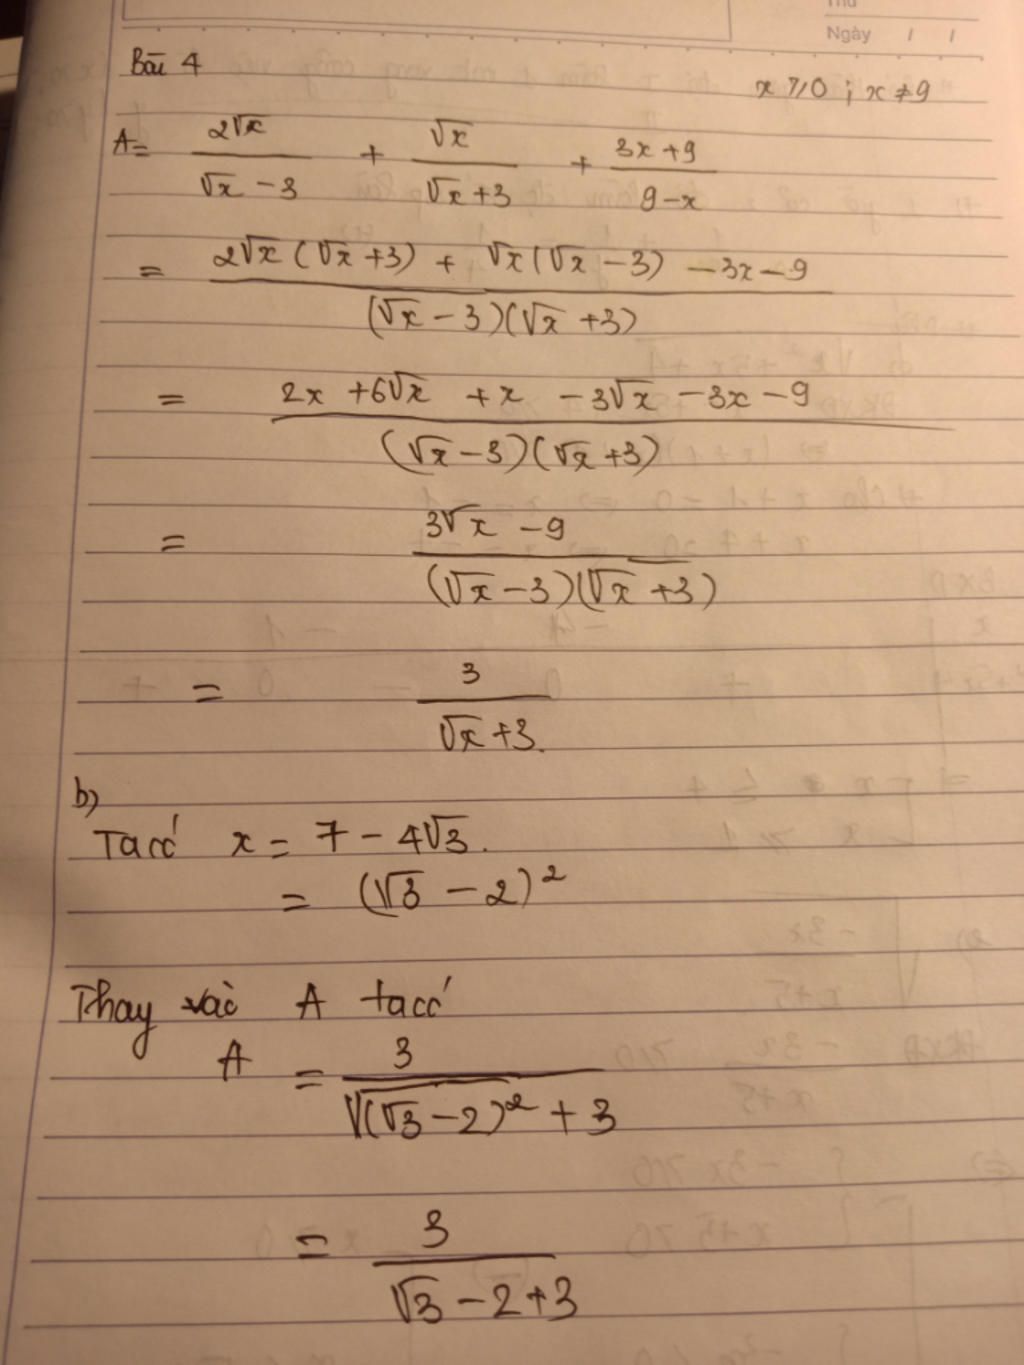 Thứ
Ngày / /
Bài 4
x ⩾ 0 ; x ≠ 9
A = 2√x / (√x - 3) + √x / (√x + 3) + (3x + 9) / (9 - x)
= (2√x (√x + 3) + √x (√x - 3) - 3x - 9) / ((√x - 3)(√x + 3))
= (2x + 6√x + x - 3√x - 3x - 9) / ((√x - 3)(√x + 3))
= (3√x - 9) / ((√x - 3)(√x + 3))
= 3 / (√x + 3).
b)
Ta có x = 7 - 4√3.
= (√3 - 2)²
Thay vào A ta có
A = 3 / (√(√3 - 2)² + 3)
= 3 / (√3 - 2 + 3)